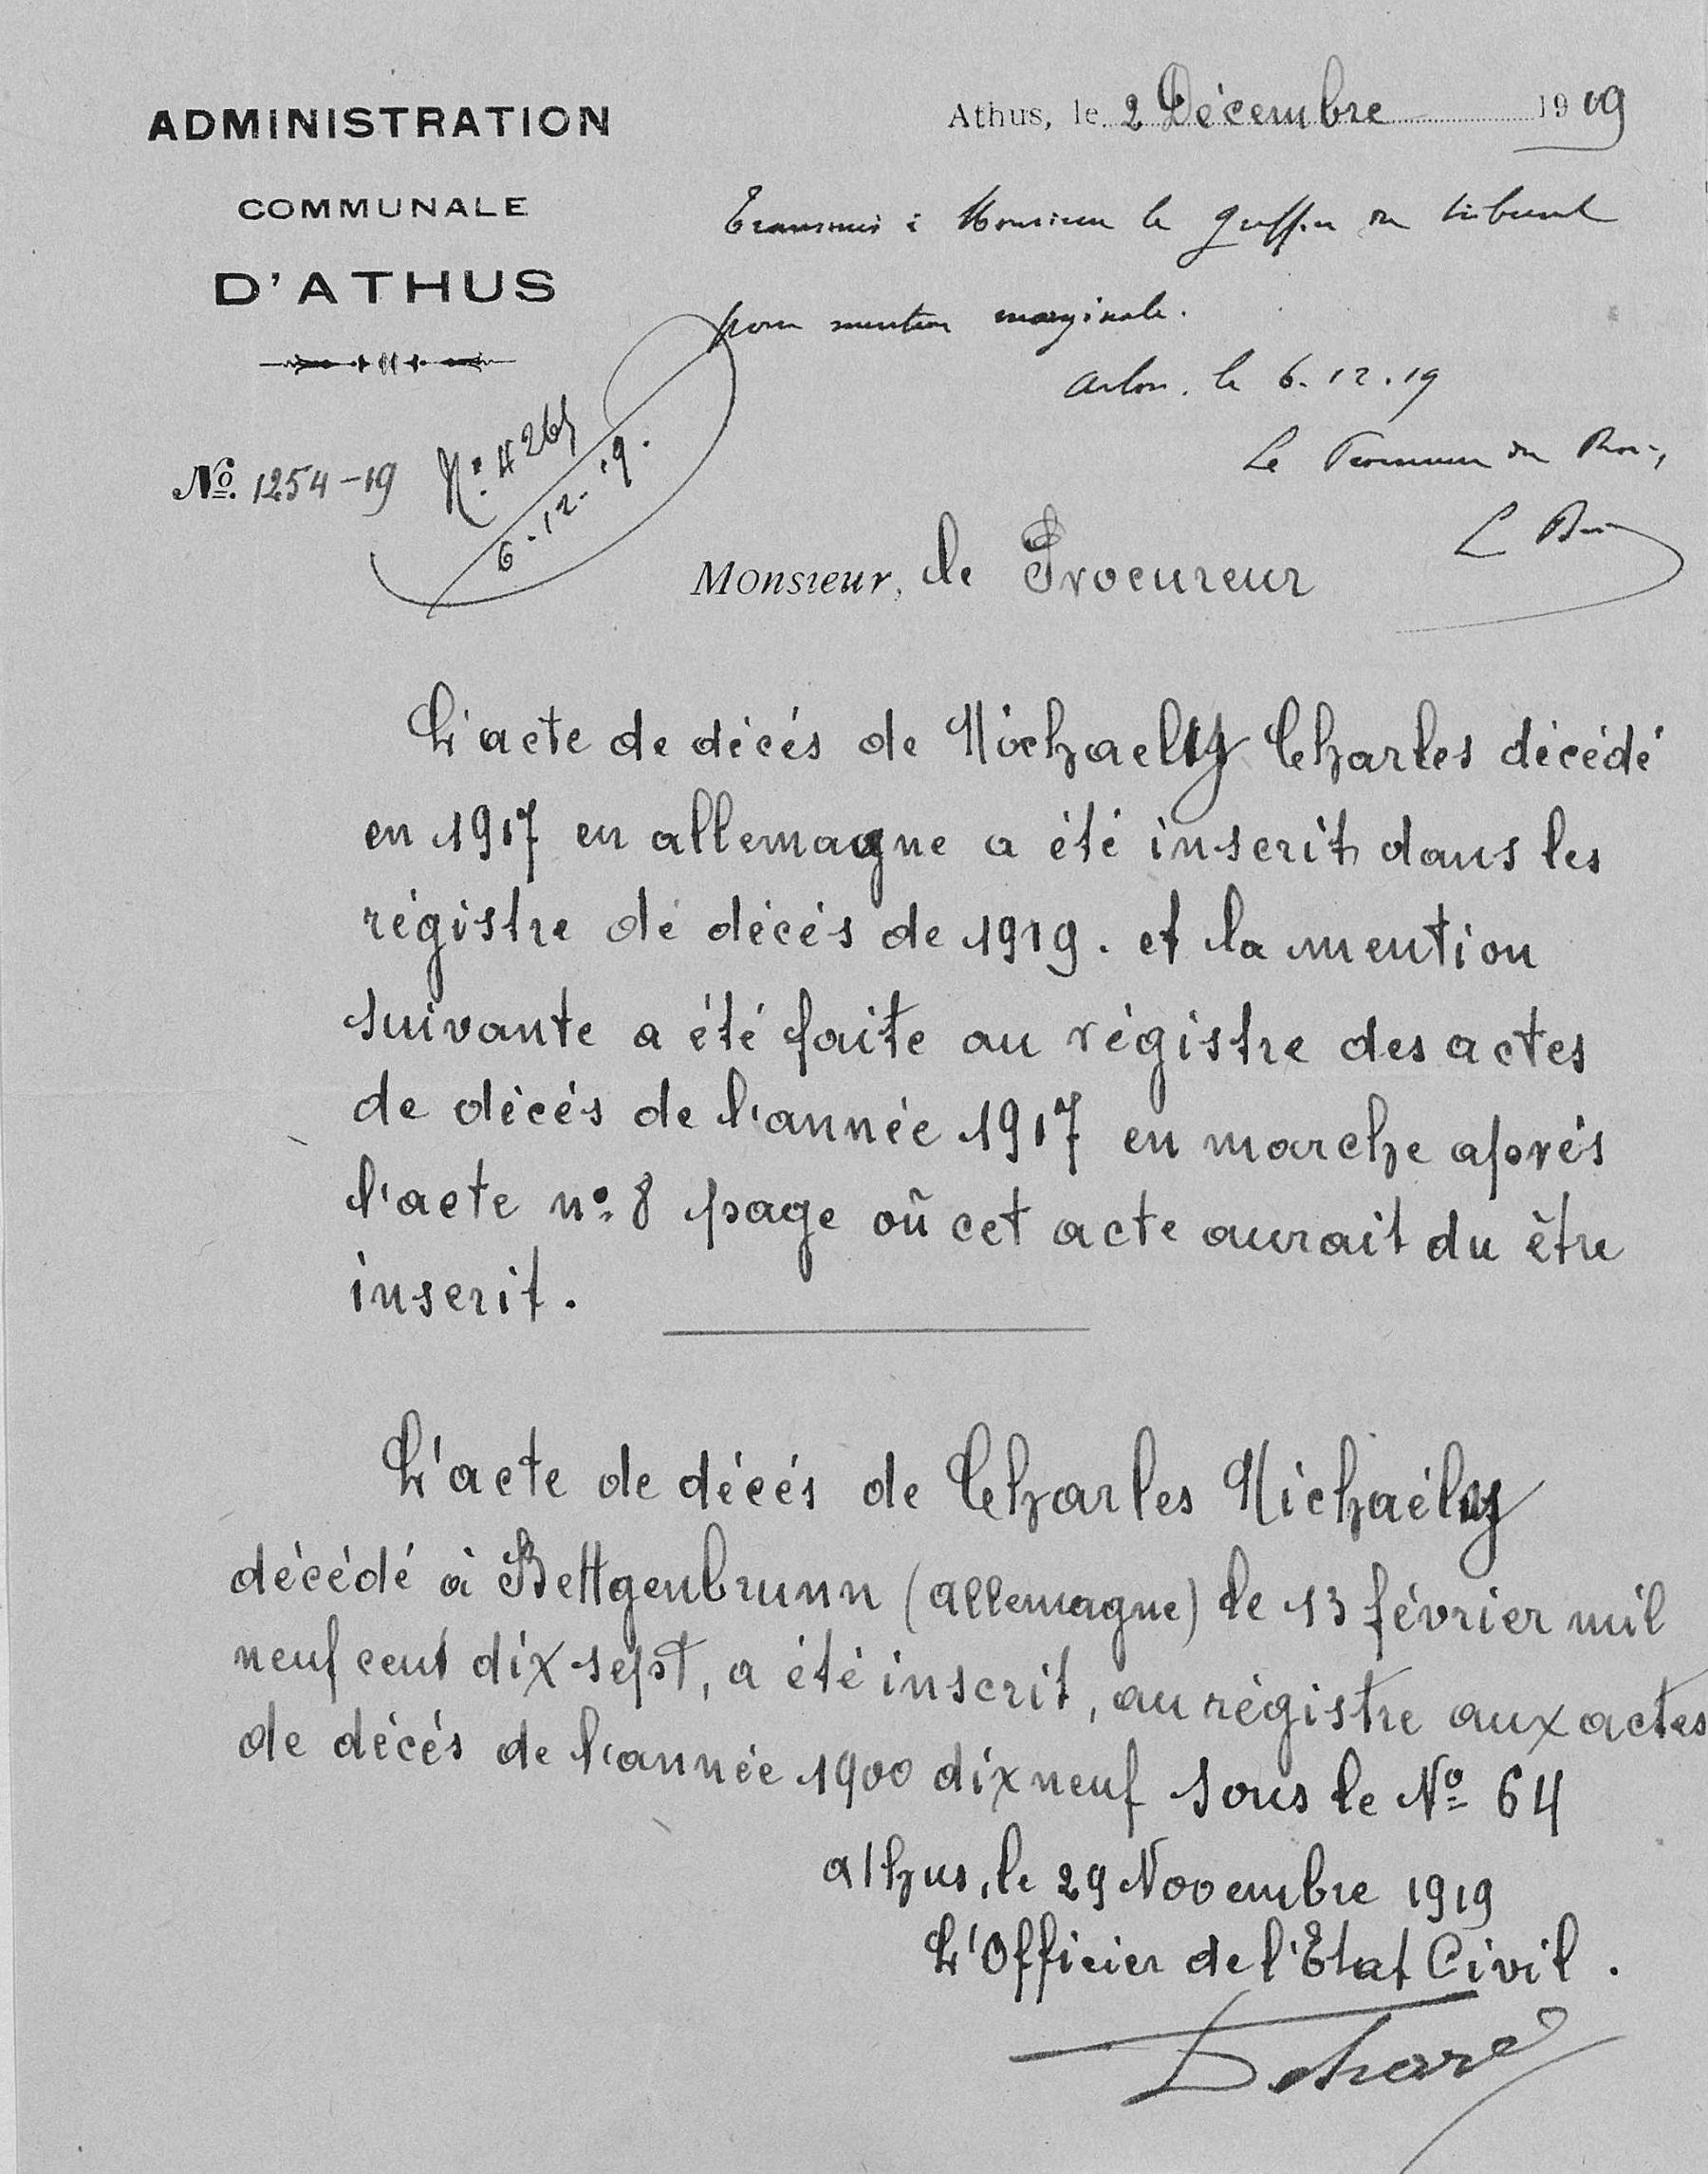 ADMINISTRATION
COMMUNALE
D'ATHUS
Athus, le 2 Décembre 1919
Transmis à Monsieur le greffier du tribunal
pour mention marginale.
Arlon, le 6.12.19
Le Procureur du Roi,
No. 1254-19
6.12.19.
Monsieur, le Procureur
L'acte de décés de Michaelÿ Charles décédé
en 1917 en allemagne a été inscrit dans les
régistre de décés de 1919. et la mention
suivante a été faite au régistre des actes
de décés de l'année 1917 en marche aprés
l'acte nº 8 page où cet acte aurait du être
inscrit.
L'acte de décés de Charles Michaély
décédé à Bettgenbrunn (allemagne) le 13 février mil
neuf cent dix sept, a été inscrit, au régistre aux actes
de décés de l'année 1900 dix neuf sous le Nº 64
athus, le 29 Novembre 1919
L'Officier de l'Etat Civil.